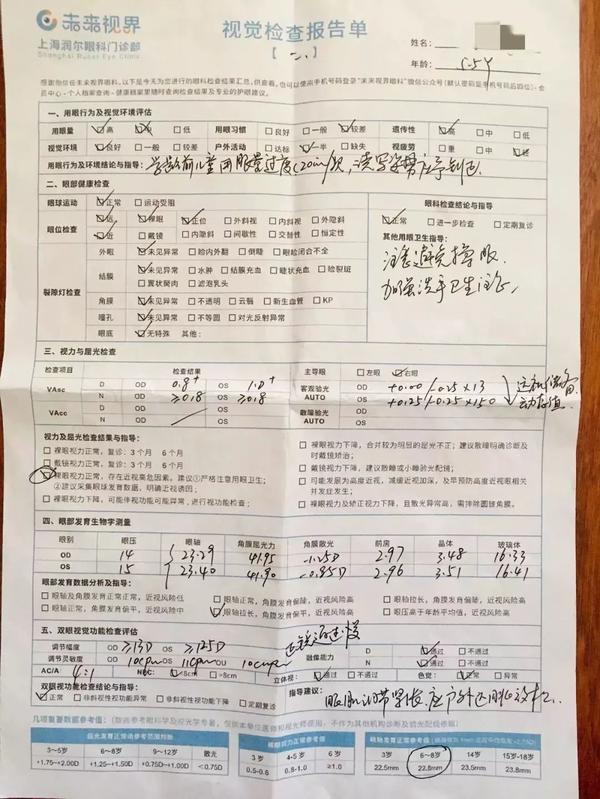 未来视界
上海润尔眼科门诊部
Shanghai Runer Eye Clinic
视觉检查报告单
姓名:
年龄: 5.5Y
感谢您信任未来视界眼科,以下是今天为您进行的眼科检查结果汇总,供查看,也可以使用手机号码登录"未来视界眼科"微信公众号(默认密码是手机号码后四位)-会
员中心-个人档案查询-健康档案里随时查询检查结果及专业的护眼建议。
一、用眼行为及视觉环境评估
用眼量 高 中 低 用眼习惯: 良好 一般 较差 遗传性: 高 中 低
视觉环境: 良好 一般 较差 户外活动 达标 一半 缺失 视疲劳: 重 中 轻
用眼行为及环境结论与指导: 学龄前儿童用眼量过度(20min/次,读写姿势应予纠正
二、眼部健康检查
眼球运动 正常 运动受阻 眼科检查结论与指导
眼位检查 远 裸眼 正位 外斜视 内斜视 外隐斜 正常 进一步检查 定期复诊
近 戴镜 内隐斜 间歇性 交替性 恒定性 其他用眼卫生指导:
外眼 未见异常 睑内外翻 倒睫 眼睑闭合不全 注意避免揉眼
裂隙灯检查 结膜 未见异常 水肿 结膜充血 睫状充血 睑裂斑 加强洗手卫生
翼状胬肉 滤泡乳头
角膜 未见异常 不透明 云翳 新生血管 KP
瞳孔 未见异常 不等圆 对光反射异常
眼底 无特殊 其他:
三、视力与屈光检查
检查项目 检查结果 主导眼 左眼 右眼
VAsc D OD 0.8+ OS 1.0+ 客观验光 OD +0.00/-0.25×13
N OD ≥0.8 OS ≥0.8 AUTO OS +0.25/-0.25×150
VAcc D OD OS 散瞳验光 OD
N OD OS AUTO OS
视力及屈光检查结果与指导:
裸眼视力正常,复诊: 3个月 6个月 裸眼视力下降,合并较为明显的屈光不正;建议散瞳明确诊断及时戴镜矫治;
戴镜视力正常,复诊: 3个月 6个月 戴镜视力下降,建议散瞳或小瞳验光配镜;
裸眼视力正常,存在近视高危因素,建议①严格注意用眼卫生; 可能发展为高度近视,减缓近视加深,及早预防高度近视眼相关并发症发生;
②建议采集眼球发育数据,明确近视诱因;
裸眼视力下降,可能伴视功能可能异常,进行视功能检查; 裸眼视力及矫正视力下降,且散光异常高,需排除圆锥角膜。
四、眼部发育生物学测量
眼别 眼压 眼轴 角膜屈光力 角膜散光 前房 晶体 玻璃体
OD 14 23.29 41.95 -1.25D 2.97 3.48 16.33
OS 15 23.40 41.90 -0.85D 2.96 3.51 16.41
眼部发育数据分析及指导:
眼轴及角膜发育正常正常,近视风险低 眼轴正常,角膜发育偏陡,近视风险高 眼轴拉长,角膜发育偏陡,近视风险高
眼轴正常,角膜发育偏平,近视风险中 眼轴拉长,角膜发育偏平,近视风险高 眼压高于年龄平均值,近视风险高
五、双眼视觉功能检查评估
调节幅度 ≥13D OS ≥12.5D 融像能力 D 通过 不通过
调节灵敏度 OD 10cpm OS 11cpm OU 10cpm N 通过 不通过
AC/A 4:1 NPC >8cm 立体视: 通过 不通过 色觉: 正常 异常
双眼视功能检查结论与指导: 指导建议:
正常 非斜视性视功能异常 非斜视性视功能下降 定期复诊
几项重要数据参考值:
3~5岁 6~8岁 9~12岁 散光
+1.75~+2.00D +1.25~+1.50D +0.75~+1.00D <0.75D
3岁 4-5岁 6岁
0.5-0.6 0.8-1.0 ≥1.0
3岁 6~8岁 14岁 15岁-18岁
22.5mm 22.8mm 23.5mm 23.8mm